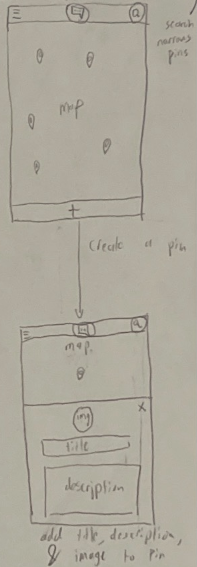 search
narrows
pins
map
+
Create a pin
map.
x
img
title
description
add title, description,
& image to pin